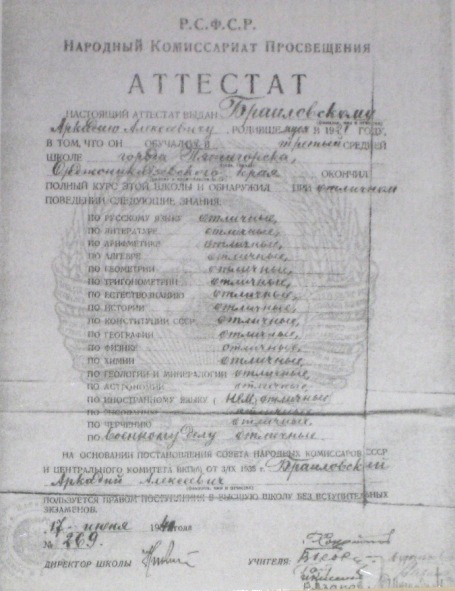 Р.С.Ф.С.Р.
НАРОДНЫЙ КОМИССАРИАТ ПРОСВЕЩЕНИЯ
АТТЕСТАТ
НАСТОЯЩИЙ АТТЕСТАТ ВЫДАН Браиловскому
Аркадию Алексеевичу, РОДИВШЕМУСЯ В 19 ГОДУ,
В ТОМ, ЧТО ОН ОБУЧАЛСЯ В третьей СРЕДНЕЙ
ШКОЛЕ города Пятигорска,
Орджоникидзевского края ОКОНЧИЛ
ПОЛНЫЙ КУРС ЭТОЙ ШКОЛЫ И ОБНАРУЖИЛ ПРИ отличном
ПОВЕДЕНИИ СЛЕДУЮЩИЕ ЗНАНИЯ:
ПО РУССКОМУ ЯЗЫКУ отличные,
ПО ЛИТЕРАТУРЕ отличные,
ПО АРИФМЕТИКЕ отличные,
ПО АЛГЕБРЕ отличные,
ПО ГЕОМЕТРИИ отличные,
ПО ТРИГОНОМЕТРИИ отличные,
ПО ЕСТЕСТВОЗНАНИЮ отличные,
ПО ИСТОРИИ отличные,
ПО КОНСТИТУЦИИ СССР отличные,
ПО ГЕОГРАФИИ отличные,
ПО ФИЗИКЕ отличные,
ПО ХИМИИ отличные,
ПО ГЕОЛОГИИ И МИНЕРАЛОГИИ отличные,
ПО АСТРОНОМИИ отличные,
ПО ИНОСТРАННОМУ ЯЗЫКУ (НЕМ) отличные
ПО отличные
ПО ЧЕРЧЕНИЮ отличные,
ПО Военному делу отличные
НА ОСНОВАНИИ ПОСТАНОВЛЕНИЯ СОВЕТА НАРОДНЫХ КОМИССАРОВ СССР
И ЦЕНТРАЛЬНОГО КОМИТЕТА ВКП(б) ОТ 3/IX 1935 г. Браиловский
Аркадий Алексеевич
ПОЛЬЗУЕТСЯ ПРАВОМ ПОСТУПЛЕНИЯ В ВЫСШУЮ ШКОЛУ БЕЗ ВСТУПИТЕЛЬНЫХ
ЭКЗАМЕНОВ.
17 июня 19 года
№ 269.
ДИРЕКТОР ШКОЛЫ УЧИТЕЛЯ: